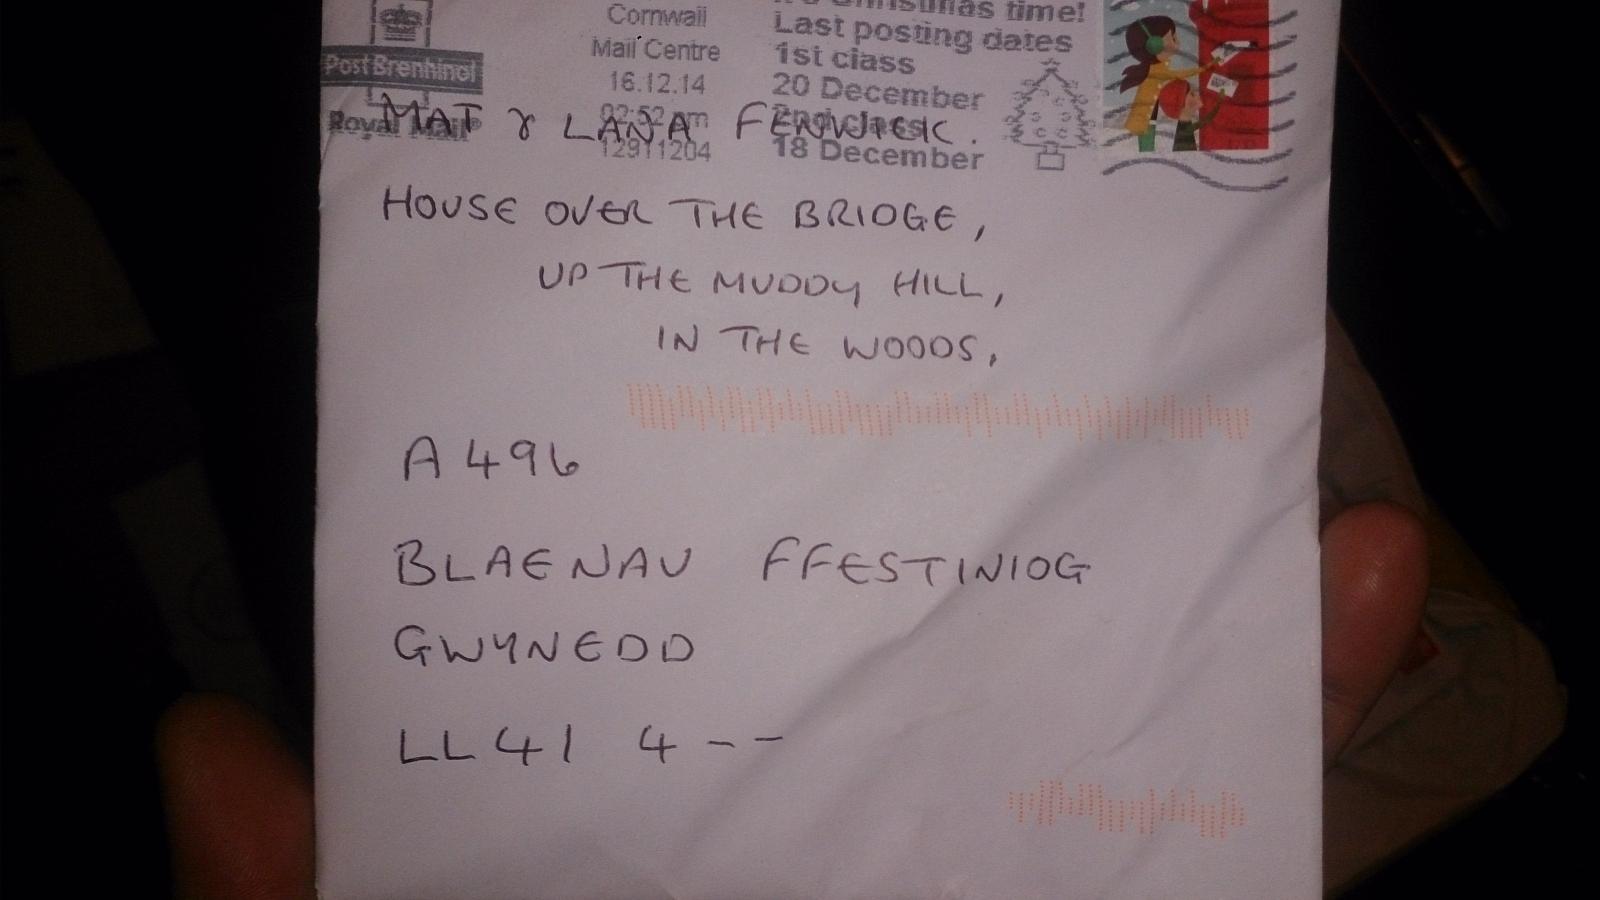 Cornwall
Mail Centre
16.12.14
12911204
Post Brenhinol
Royal Mail
Christmas time!
Last posting dates
1st class
20 December
18 December
MAT & LANA FENWICK.
HOUSE OVER THE BRIDGE,
UP THE MUDDY HILL,
IN THE WOODS,
A496
BLAENAU FFESTINIOG
GWYNEDD
LL41 4--